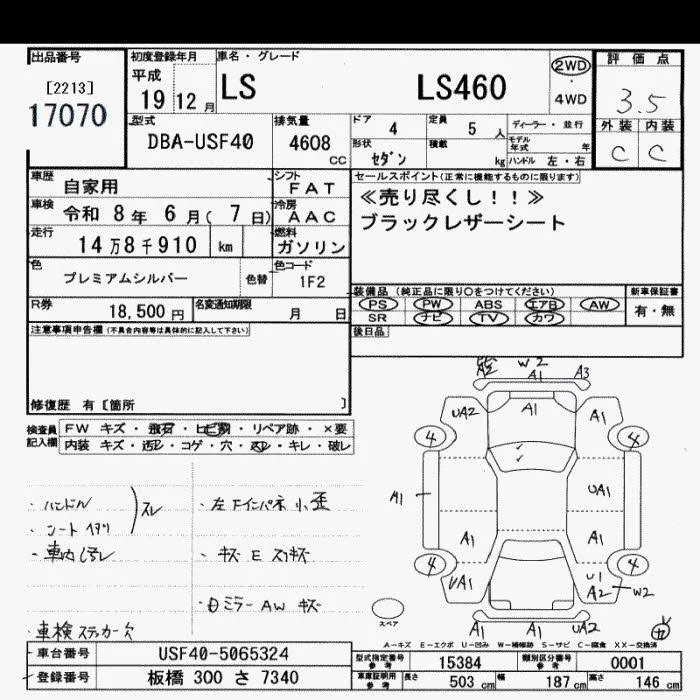 出品番号
[2213]
17070
初度登録年月
平成
19 12 月
車名・グレード
LS LS460
2WD
・
4WD
評価点
3.5
外装 内装
C C
型式
DBA-USF40
排気量
4608 CC
ドア 4
定員 5 人
形状 セダン
積載 kg
ディーラー・並行
モデル年式 年
ハンドル 左・右
車歴 自家用
シフト FAT
車検 令和 8 年 6 月( 7 日)
冷房 AAC
走行 14 万 8 千 910 km
燃料 ガソリン
色 プレミアムシルバー
色替
色コード 1F2
R券 18,500 円
名変通知期限 月 日
セールスポイント(正常に機能するものに限ります)
≪売り尽くし!!≫
ブラックレザーシート
装備品 (純正品に限り○をつけてください)
PS PW ABS エアB AW
SR ナビ TV カワ
新車保証書
有・無
後日品
注意事項申告欄 (不具合内容等は具体的に記入して下さい)
修復歴 有〔箇所 〕
検査員記入欄
FW キズ・飛石・ヒビ割・リペア跡・×要
内装 キズ・汚レ・コゲ・穴・スレ・キレ・破レ
・ハンドル
・シートヘタリ
スレ
・車内汚レ
・左下インパネ小歪
・キズ E スリキズ
・Dミラー AW キズ
車検ステッカー欠
W2
A1 A3
UA2 A1 A1
4 4
A1 UA1
A1 A1
4 4
UA1 U1
A2 W2
A1 A1 UA2
スペア
A-キズ E-エクボ U-凹み W-補修跡 S-サビ C-腐食 XX-交換済
車台番号 USF40-5065324
登録番号 板橋 300 さ 7340
型式指定番号 参考 15384
類別区分番号 参考 0001
車庫証明用 参考 長さ 503 cm 幅 187 cm 高さ 146 cm